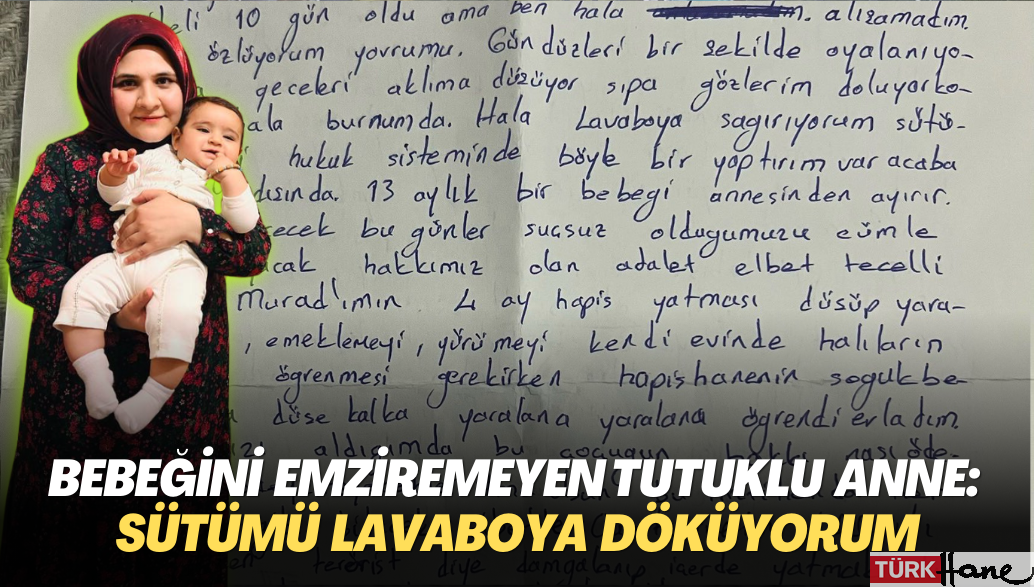 10 gün oldu ama ben hala alışamadım
özlüyorum yavrumu. Gündüzleri bir şekilde oyalanıyo-
geceleri aklıma düşüyor sıpa gözlerim doluyorko-
ala burnumda. Hala Lavaboya sağırıyorum sütü-
hukuk sisteminde böyle bir yaptırım var acaba
13 aylık bir bebegi annesinden ayırır.
ecek bu günler suçsuz oldugumuzu cümle
acak hakkımız olan adalet elbet tecelli
Murad'ımın 4 ay hapis yatması düşüp yara-
, emeklemeyi, yürümeyi kendi evinde halıların
ögrenmesi gerekirken hapishanenin soguk be-
düşe kalka yaralana yaralana ögrendi evladım.
aldıgımda bu çocugun hakkı nasıl öde-
BEBEĞİNİ EMZİREMEYEN TUTUKLU ANNE:
SÜTÜMÜ LAVABOYA DÖKÜYORUM
terörist diye damgalanıp içerde yatma
TÜRK Hane